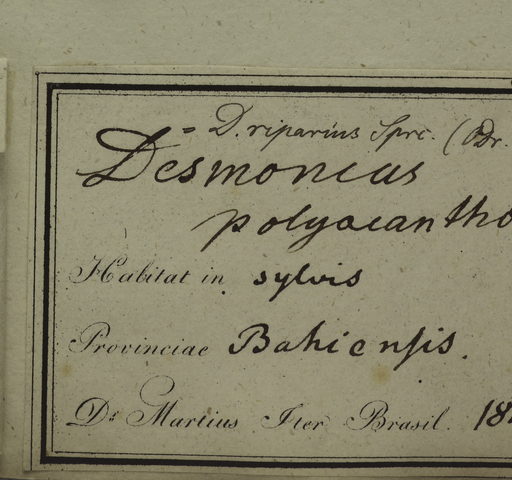 = D. riparius Spre. (Dr.
Desmoncus
polyacantho
Habitat in sylvis
Provinciae Bahiensis.
Dr. Martius Iter Brasil. 18